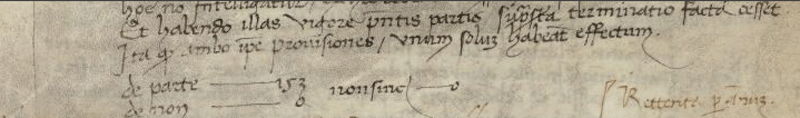 hoc no intelligatur,
Et habendo illas vigore pntis partis supsta terminatio facta cesset
Ita q ambo ipe provisiones / unum soluz habeat effectum.
de parte — 153 nonsinc — 0
de non — 0
Rettenta p